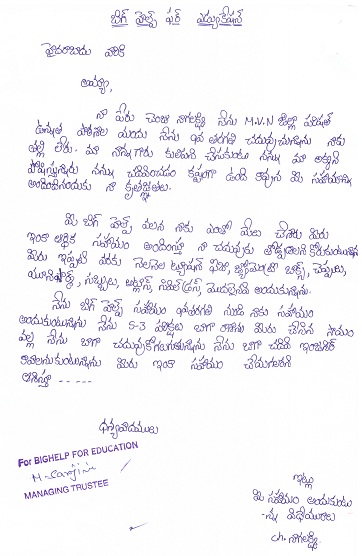 బిగ్ హెల్ప్ ఫర్ ఎడ్యుకేషన్
హైదరాబాదు వారికి
అయ్యా,
నా పేరు చెంచు నాగలక్ష్మి నేను M.V.N జిల్లా పరిషత్
ఉన్నత పాఠశాల యందు నేను 10వ తరగతి చదువుచున్నాను నాకు
తల్లి లేరు. మా నాన్నగారు కూలిపని చేసుకుంటూ నన్ను మా అక్కని
పోషిస్తున్నారు నన్ను చదివించడం కష్టంగా ఉంది కావున మీ సహాయాన్ని
అందించినందుకు నా కృతజ్ఞతలు.
మీ బిగ్ హెల్ప్ వలన నాకు ఎంతో మేలు చేశారు మీరు
ఇంకా అధిక సహాయం అందిస్తూ నా చదువుకు తోడ్పడాలని కోరుకుంటున్నాను
మీరు ఇప్పటి వరకు నెలనెల ట్యూషన్ ఫీజు, జ్యామెంట్రీ బాక్స్, చెప్పులు,
యూనిఫార్మ్, సబ్బులు, టవల్స్, సివిల్ డ్రస్, మొదలైనవి అందుకున్నాను.
నేను బిగ్ హెల్ప్ సహాయం 8వతరగతి నుండి నాకు సహాయం
అందుకుంటున్నాను నేను S-3 పరీక్షలు బాగా రాశాను మీరు చేసిన సాయం
వల్ల నేను బాగా చదువుకోగలుగుతున్నాను నేను బాగా చదివి ఇంజనీర్
కావాలనుకుంటున్నాను మీరు ఇంకా సహాయం చేయగలరని
ఆశిస్తూ - - - - -
ధన్యవాదములు
For BIGHELP FOR EDUCATION
MANAGING TRUSTEE
ఇట్లు
మీ సహాయం అందుకుంటు
-న్న విధేయురాలు
ch. నాగలక్ష్మి